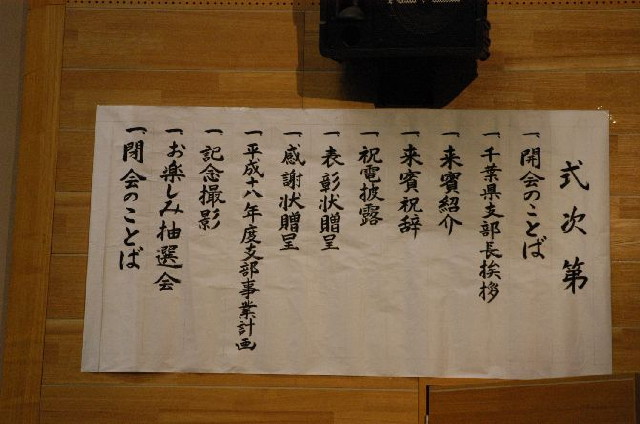 式次第
一、開会のことば
一、千葉県支部長挨拶
一、来賓紹介
一、来賓祝辞
一、祝電披露
一、表彰状贈呈
一、感謝状贈呈
一、平成十八年度支部事業計画
一、記念撮影
一、お楽しみ抽選会
一、閉会のことば